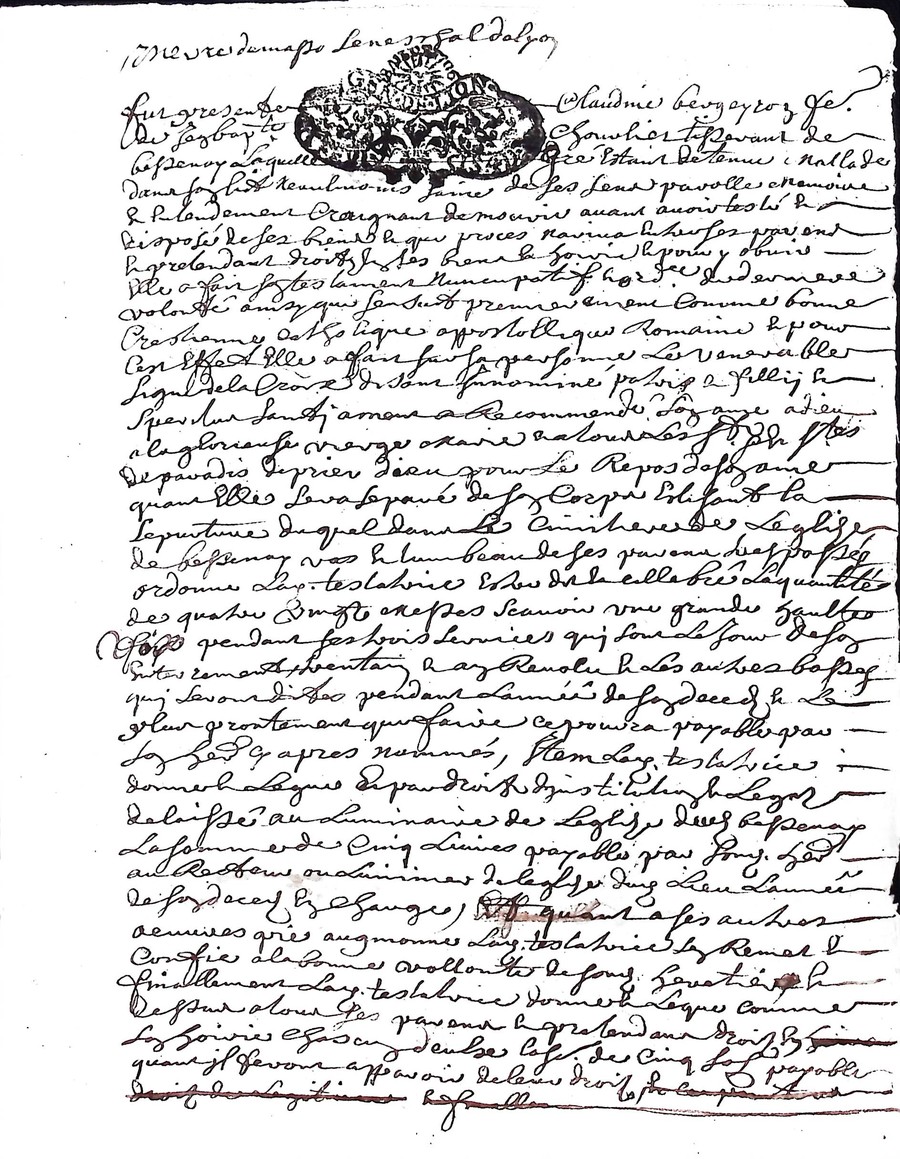 Mevre de masso seneschal de lyon
GENERALITE DE LION
fut presente Claudine bergeyron fe.
de Jey bapte Chouvliet tisserant de
bessenay laquelle gré Estant detenue mallade
dans son lict neaulmoins saine de ses sens parolle memoire
& entendement Craignant de mourir avant avoir testé &
disposé de ses biens & que proces narriva entre ses parens
& pretendant droit en ses biens & hoirie & pour y obvier
Elle a fait son testament nuncupatif & ord.re de derniere
volonté ainsy que sensuit premierement Comme bonne
Crestienne catholique appostollique Romaine & pour
Cest Effect Elle a fait sur sa personne Le venerable
signe de la Croix disant In nomine patris & fillij &
Speritus Santj amen a Recommendé son ame a dieu
a la glorieuse vierge Marie & a tous Les Sts & Stes
de paradis de prier dieu pour Le Repos de son ame
quant Elle sera separé de son Corps Elisant la
sepulture duquel dans Le Cimithere de Leglise
de bessenay vas & tumbeau de ses parens trespassés
ordonne Lad. testatrice Estre dit & cellebré La quantités
de quatre vingt messes scavoir une grande haulte
pendant ses trois services quj sont Le Jour de son
Enterrement, trentain & an Revolu & Les autres basses
quj seront dittes pendant Lannéé de son deced & Le
plus prontement que faire ce pourra payable par
son her. Cy apres nommés, Item Lad. testatrice
donne & Legue & par droit dinstitution & Legat
delaissé au Luminaire de Leglise dud bessenay
La somme de Cinq Livres payable par sond. her.
au Recteur ou Luminier de leglise dud Lieu Lannéé
de son deced Eschangé, quant a ses autres
oeuvres pie augmonne Lad. testatrice sen Remet &
Confie a la bonne vollonté de sond. heretier &
finallement Lad. testatrice donne & Legue comme
dessus a tous ses parens & pretendans droit En
son hoirie Chascun deulx La so. de Cinq solz payable
quant jl feront apparoir de leur droit
droit de Legitime & finalle